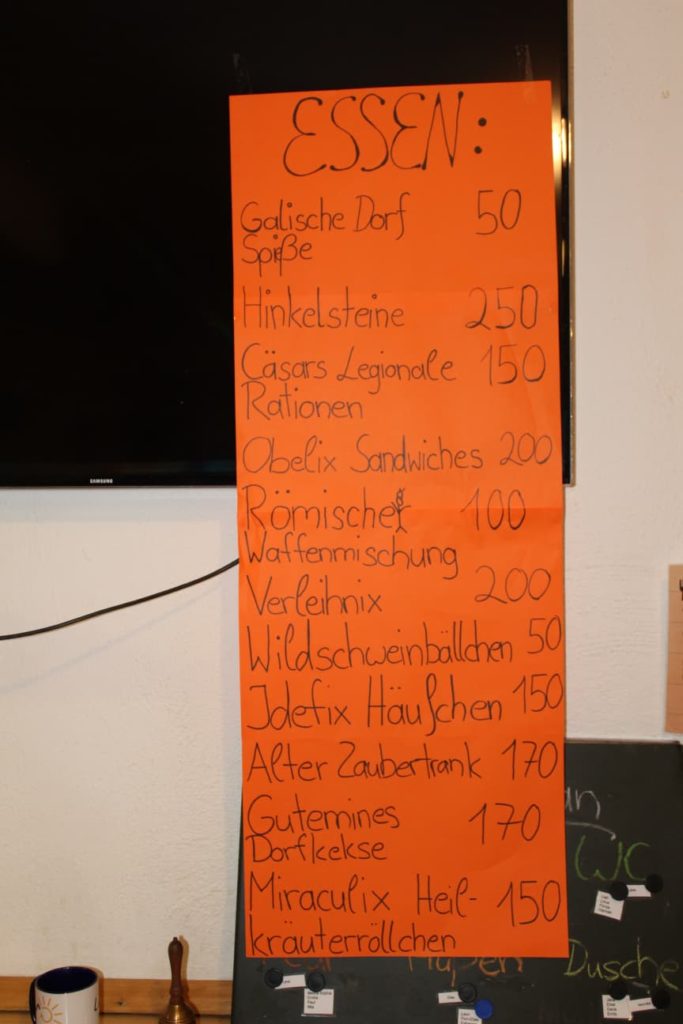 ESSEN:
Galische Dorf 50
Spieße
Hinkelsteine 250
Cäsars Legionale 150
Rationen
Obelix Sandwiches 200
Römische 100
Waffenmischung
Verleihnix 200
Wildschweinbällchen 50
Idefix Häufchen 150
Alter Zaubertrank 170
Gutemines 170
Dorfkekse
Miraculix Heil- 150
kräuterröllchen
SAMSUNG
an
WC
Dusche